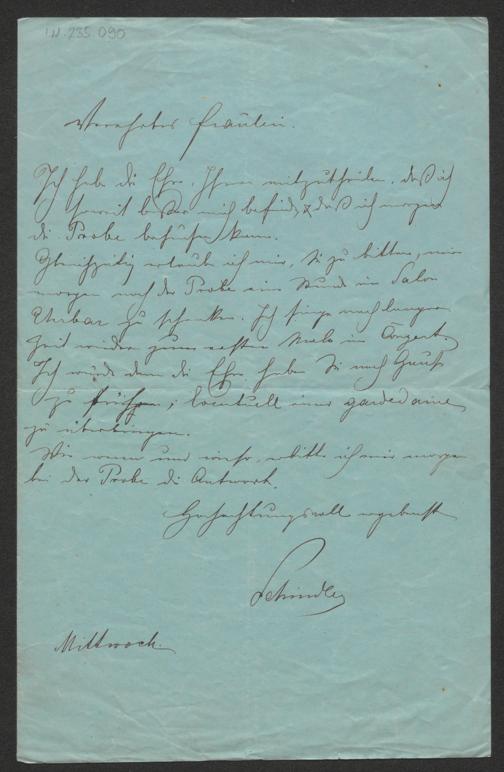 I.N. 235.090
Verehrtes Fräulein.
Ich habe die Ehre, Ihnen mitzutheilen, daß ich
soweit besser mich befinde, daß ich morgen
die Probe besuchen kann.
Gleichzeitig erlaube ich mir, Sie zu bitten, mir
morgen nach der Probe eine Stunde im Salon
Ehrbar zu schenken. Ich singe nach langer
Zeit wieder zum ersten Male im Conzert.
Ich würde dann die Ehre haben Sie nach Hause
zu führen, eventuell einer gardedame
zu überbringen.
Wie wenn und wo, erbitte ich mir morgen
bei der Probe die Antwort.
Hochachtungsvoll ergebenst
Schindler
Mittwoch.